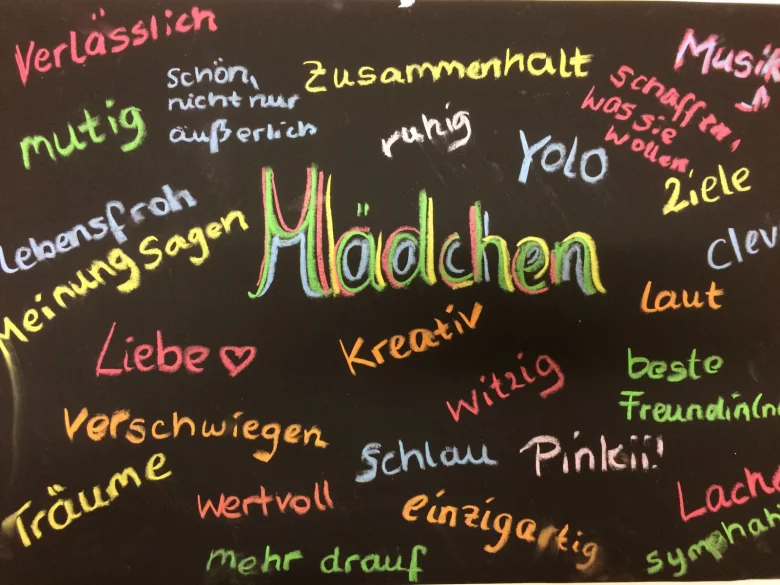 Verlässlich
schön,
nicht nur
äußerlich
Zusammenhalt
Musik
schaffen,
was sie
wollen
mutig
ruhig
Yolo
Ziele
lebensfroh
Meinung sagen
Mädchen
Clev
Laut
Liebe ♡
Kreativ
witzig
beste
Freundin(n
Verschwiegen
schlau
Pinkii!
Träume
wertvoll
einzigartig
Lache
mehr drauf
symphati